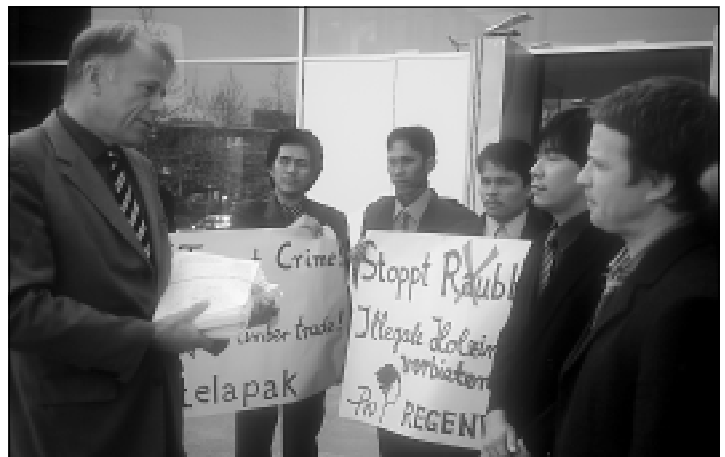 Crime!
timber trade!
telapak
Stoppt Raubb
Illegale Holzim
verbieten
Pro REGEN